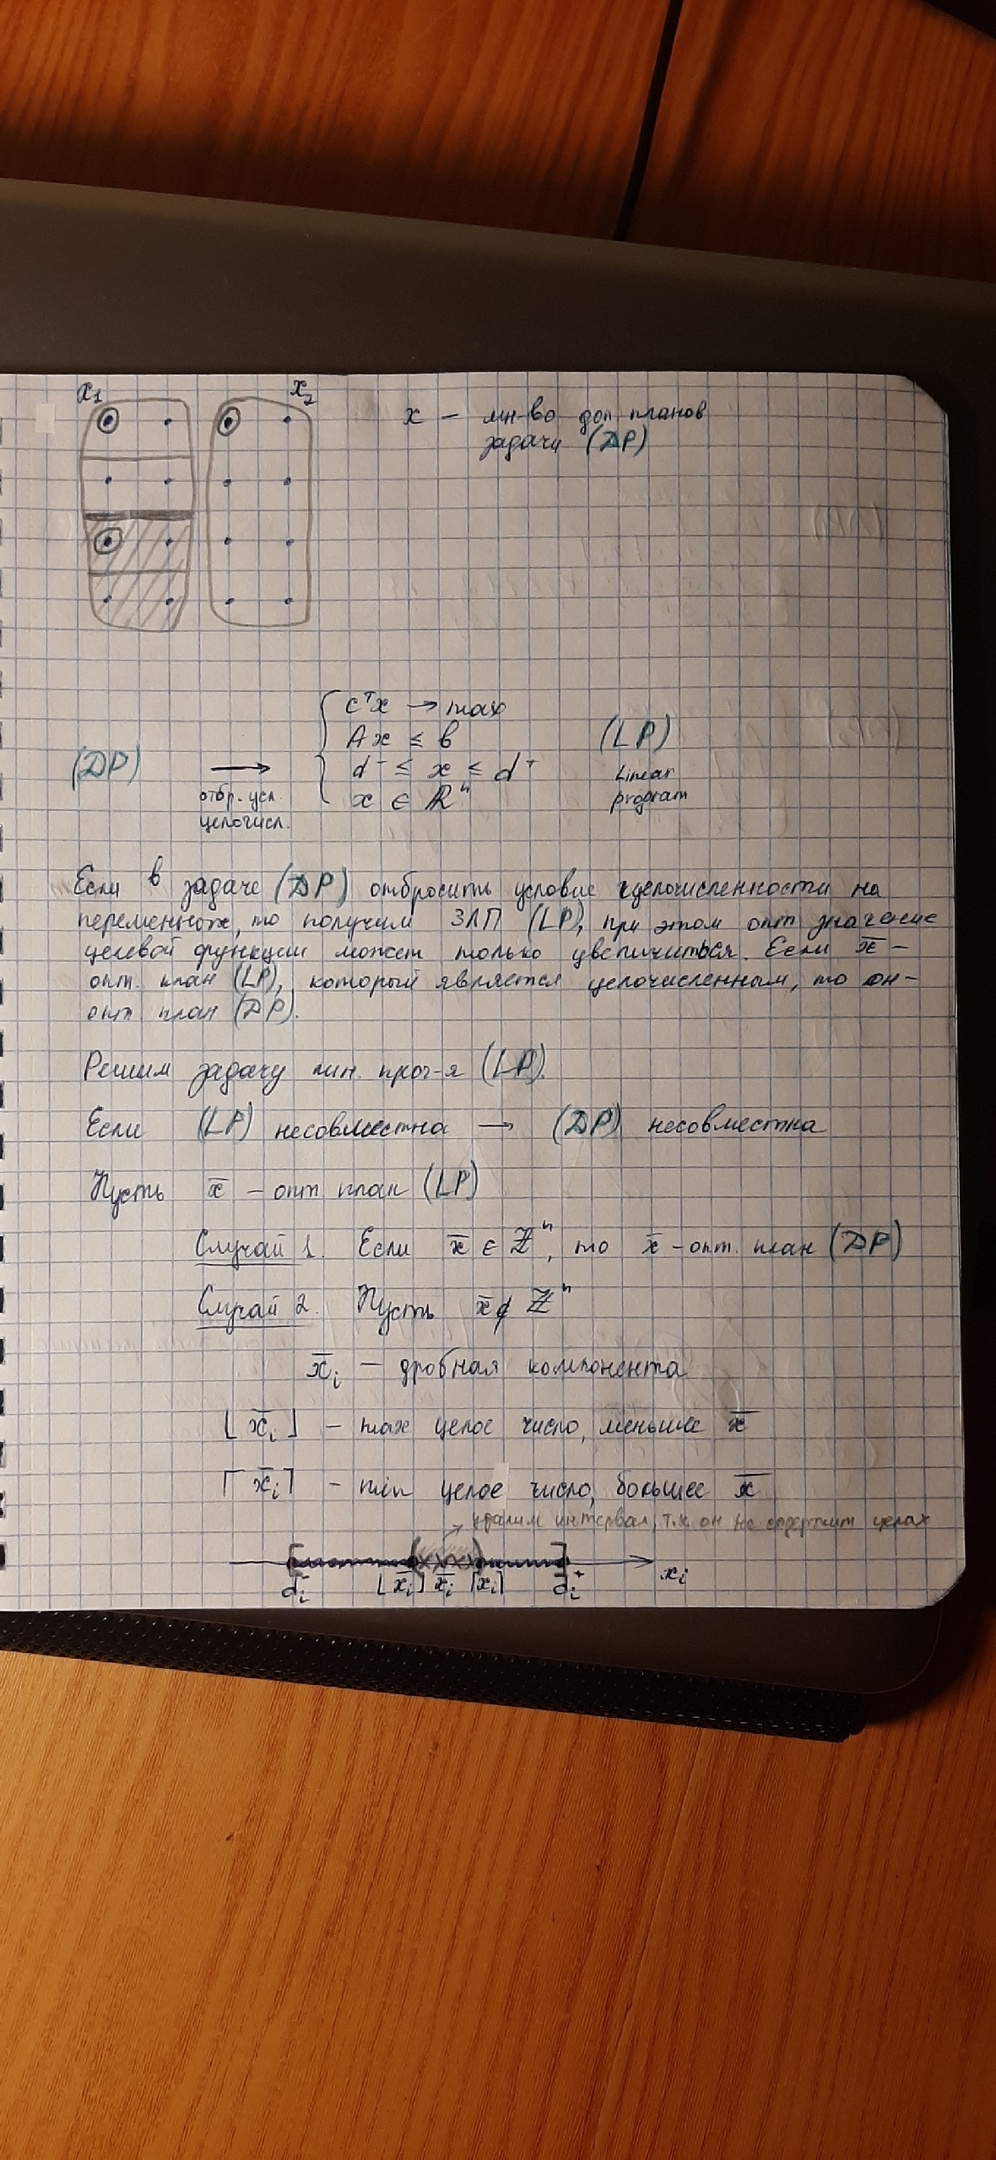 x₁ x₂
x — мн-во доп. планов
задачи (DP)
cᵀx → max
Ax ≤ b
(DP) → d⁻ ≤ x ≤ d⁺ (LP)
x ∈ ℝⁿ
отбр. усл.
целочисл.
Linear
program
Если в задаче (DP) отбросить условие целочисленности на
переменных, то получим ЗЛП (LP), при этом опт. значение
целевой функции может только увеличиться. Если x̅ –
опт. план (LP), который является целочисленным, то он –
опт план (DP).
Решим задачу лин. прог-я (LP).
Если (LP) несовместна → (DP) несовместна
Пусть x̅ – опт план (LP)
Случай 1. Если x̅ ∈ ℤⁿ, то x̅ – опт. план (DP)
Случай 2. Пусть x̅ ∉ ℤⁿ
x̅ᵢ – дробная компонента
⌊x̅ᵢ⌋ – max целое число, меньшее x̅
⌈x̅ᵢ⌉ – min целое число, большее x̅
удалим интервал, т.к. он не содержит целых
dᵢ⁻ ⌊x̅ᵢ⌋ x̅ᵢ ⌈x̅ᵢ⌉ dᵢ⁺ xᵢ